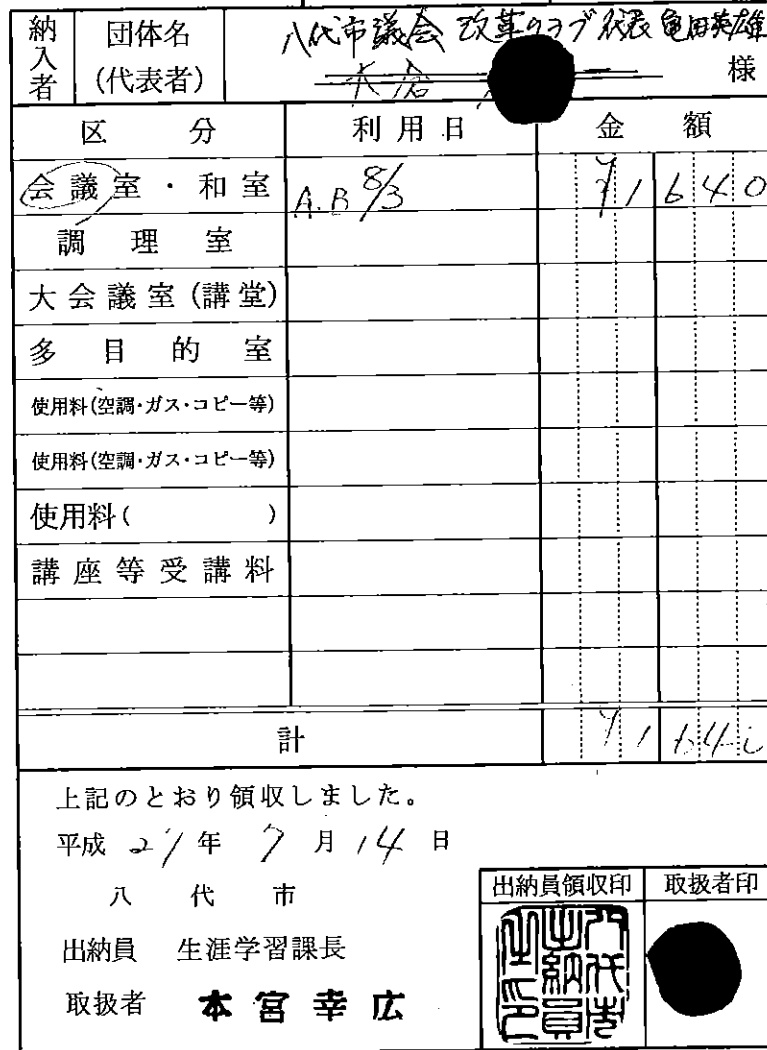 納入者 団体名(代表者) 八代市議会 改革クラブ 代表 亀田英雄 様
大倉
区分 利用日 金額
会議室・和室 A.B 8/3 ¥1640
調理室
大会議室(講堂)
多目的室
使用料(空調・ガス・コピー等)
使用料(空調・ガス・コピー等)
使用料( )
講座等受講料
計 ¥1640
上記のとおり領収しました。
平成 27年 7月 14日
八代市
出納員領収印 取扱者印
出納員 生涯学習課長
取扱者 本宮幸広
八代市出納員之印